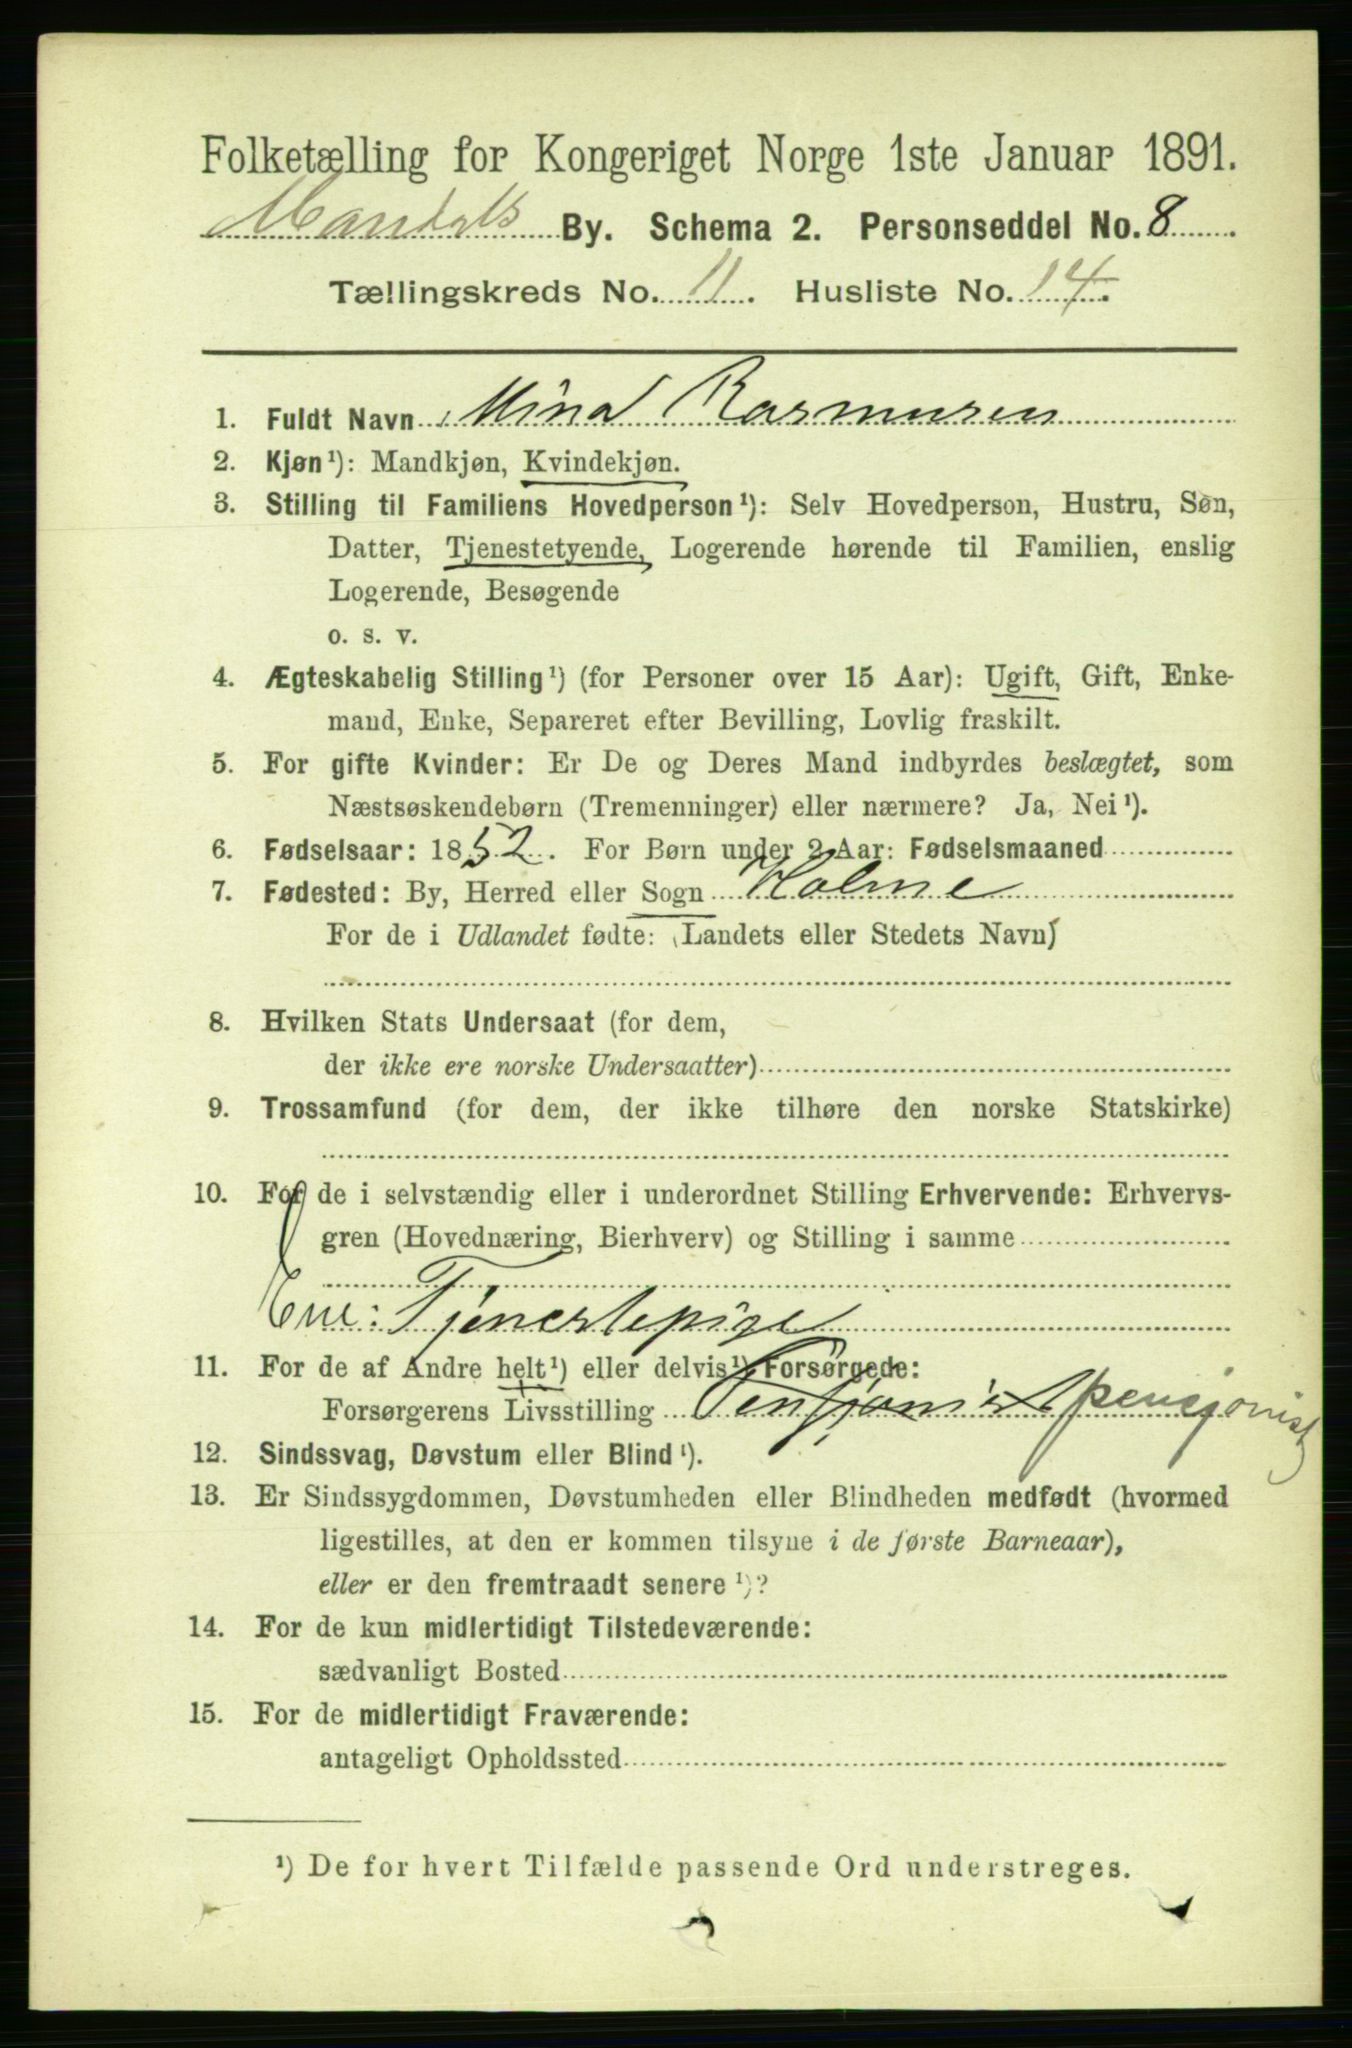 Folketælling for Kongeriget Norge 1ste Januar 1891.
Mandals By. Schema 2. Personseddel No. 8
Tællingskreds No. 11. Husliste No. 14.
1. Fuldt Navn Mina Rasmusen
2. Kjøn¹): Mandkjøn, Kvindekjøn.
3. Stilling til Familiens Hovedperson¹): Selv Hovedperson, Hustru, Søn,
Datter, Tjenestetyende, Logerende hørende til Familien, enslig
Logerende, Besøgende
o. s. v.
4. Ægteskabelig Stilling¹) (for Personer over 15 Aar): Ugift, Gift, Enke-
mand, Enke, Separeret efter Bevilling, Lovlig fraskilt.
5. For gifte Kvinder: Er De og Deres Mand indbyrdes beslægtet, som
Næstsøskendebørn (Tremenninger) eller nærmere? Ja, Nei¹).
6. Fødselsaar: 1852. For Børn under 2 Aar: Fødselsmaaned
7. Fødested: By, Herred eller Sogn Holme
For de i Udlandet fødte: (Landets eller Stedets Navn)
8. Hvilken Stats Undersaat (for dem,
der ikke ere norske Undersaatter)
9. Trossamfund (for dem, der ikke tilhøre den norske Statskirke)
10. For de i selvstændig eller i underordnet Stilling Erhvervende: Erhvervs-
gren (Hovednæring, Bierhverv) og Stilling i samme
Ene: Tjenestepige
11. For de af Andre helt¹) eller delvis¹) Forsørgede:
Forsørgerens Livsstilling Pensjonist pensjonist
12. Sindssvag, Døvstum eller Blind¹).
13. Er Sindssygdommen, Døvstumheden eller Blindheden medfødt (hvormed
ligestilles, at den er kommen tilsyne i de første Barneaar),
eller er den fremtraadt senere¹)?
14. For de kun midlertidigt Tilstedeværende:
sædvanligt Bosted
15. For de midlertidigt Fraværende:
antageligt Opholdssted
¹) De for hvert Tilfælde passende Ord understreges.